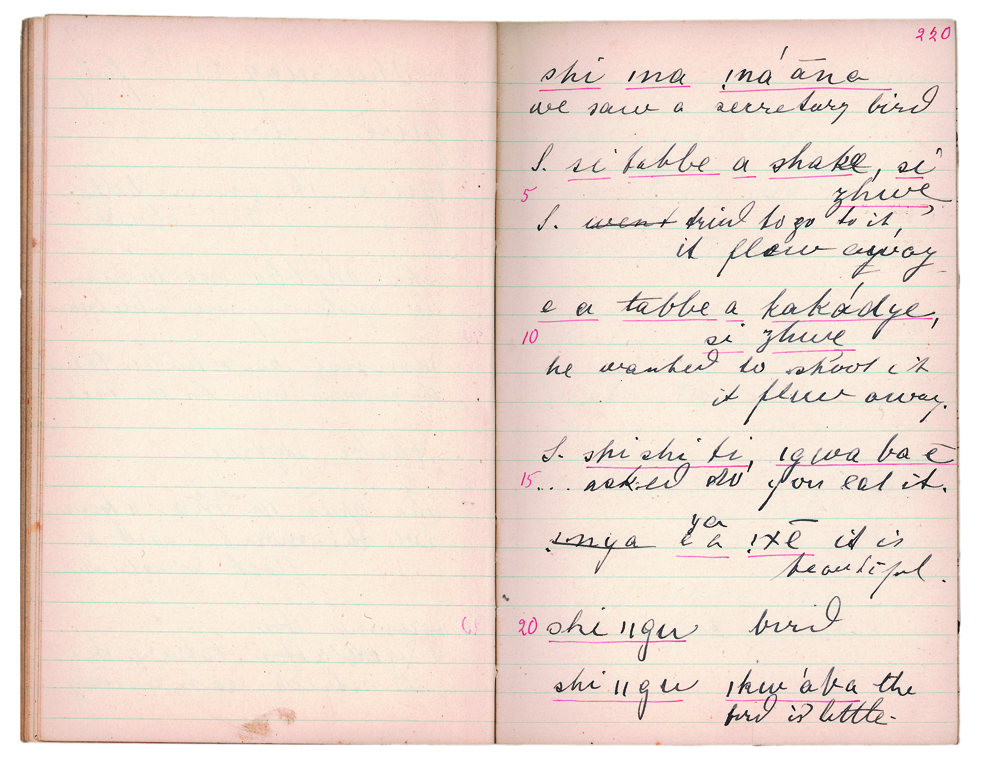 220
shi ına ˌınáʹāna
we saw a secretary bird
S. si tabbe a shake, si
5 zhwe
S. went tried to go to it,
it flew away
e a tabbe a kakádye,
10 si zhwe
he wanted to shoot it
it flew away.
S. shishi ti, ıgwa ba ē
15 ... asked do you eat it.
ya
!nya e a !xē it is
beautiful.
20 shi ǁgu bird
shi ǁgu ıkwʹába the
bird is little.